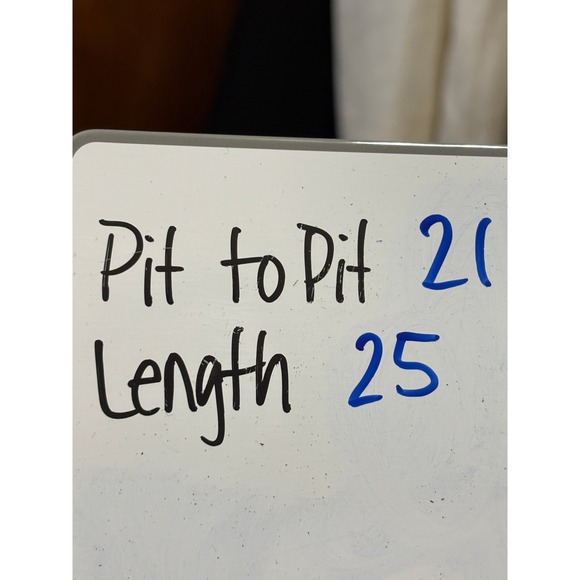 Pit to Pit 21
Length 25